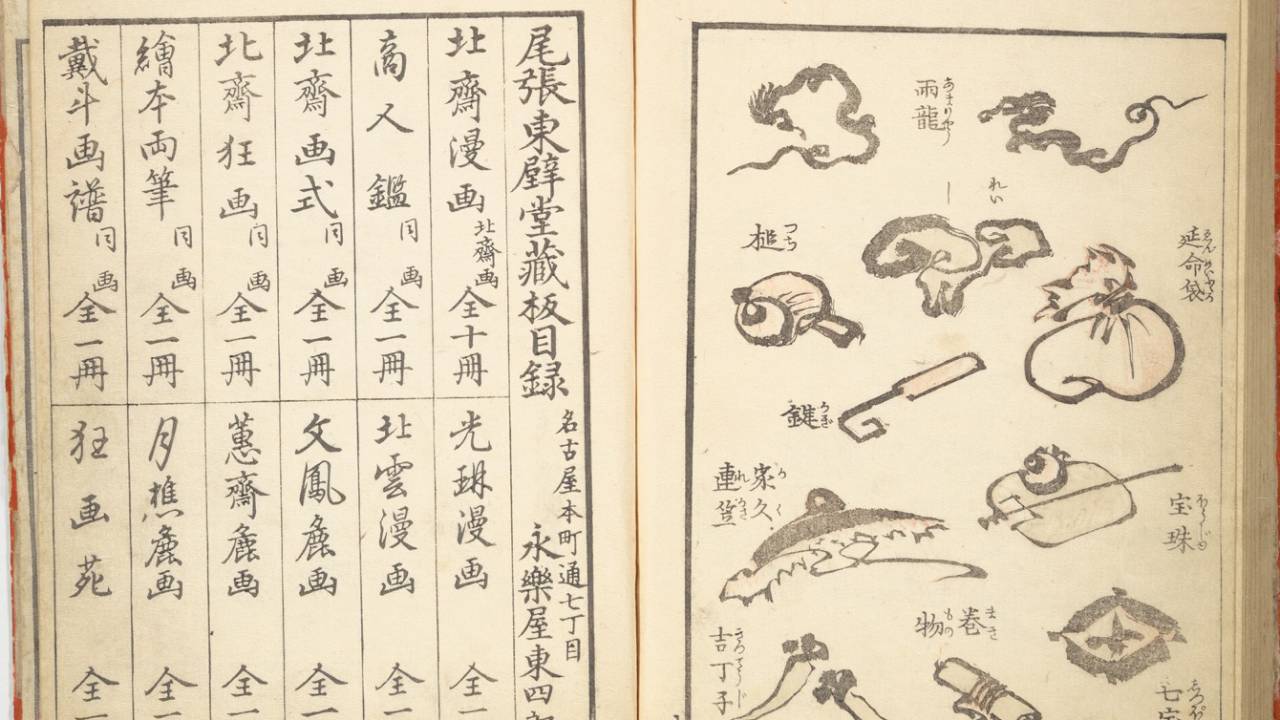 雨龍
あまりやう
れい
一
延命袋
槌
つち
鍵
かぎ
宝珠
家久連笠
かくれがさ
巻物
まきもの
吉丁子
七宝
尾張東壁堂藏板目録
名古屋本町通七丁目
永樂屋東四郎
北齋漫画 北齋画 全十冊
商人鑑 同画 全一冊
北齋画式 同画 全一冊
北齋狂画 同画 全一冊
繪本両筆 同画 全一冊
戴斗画譜 同画 全一冊
光琳漫画 全一
北雲漫画 全一
文鳳麁画 全一
蕙齋麁画 全一
月樵麁画 全一
狂画苑 全一